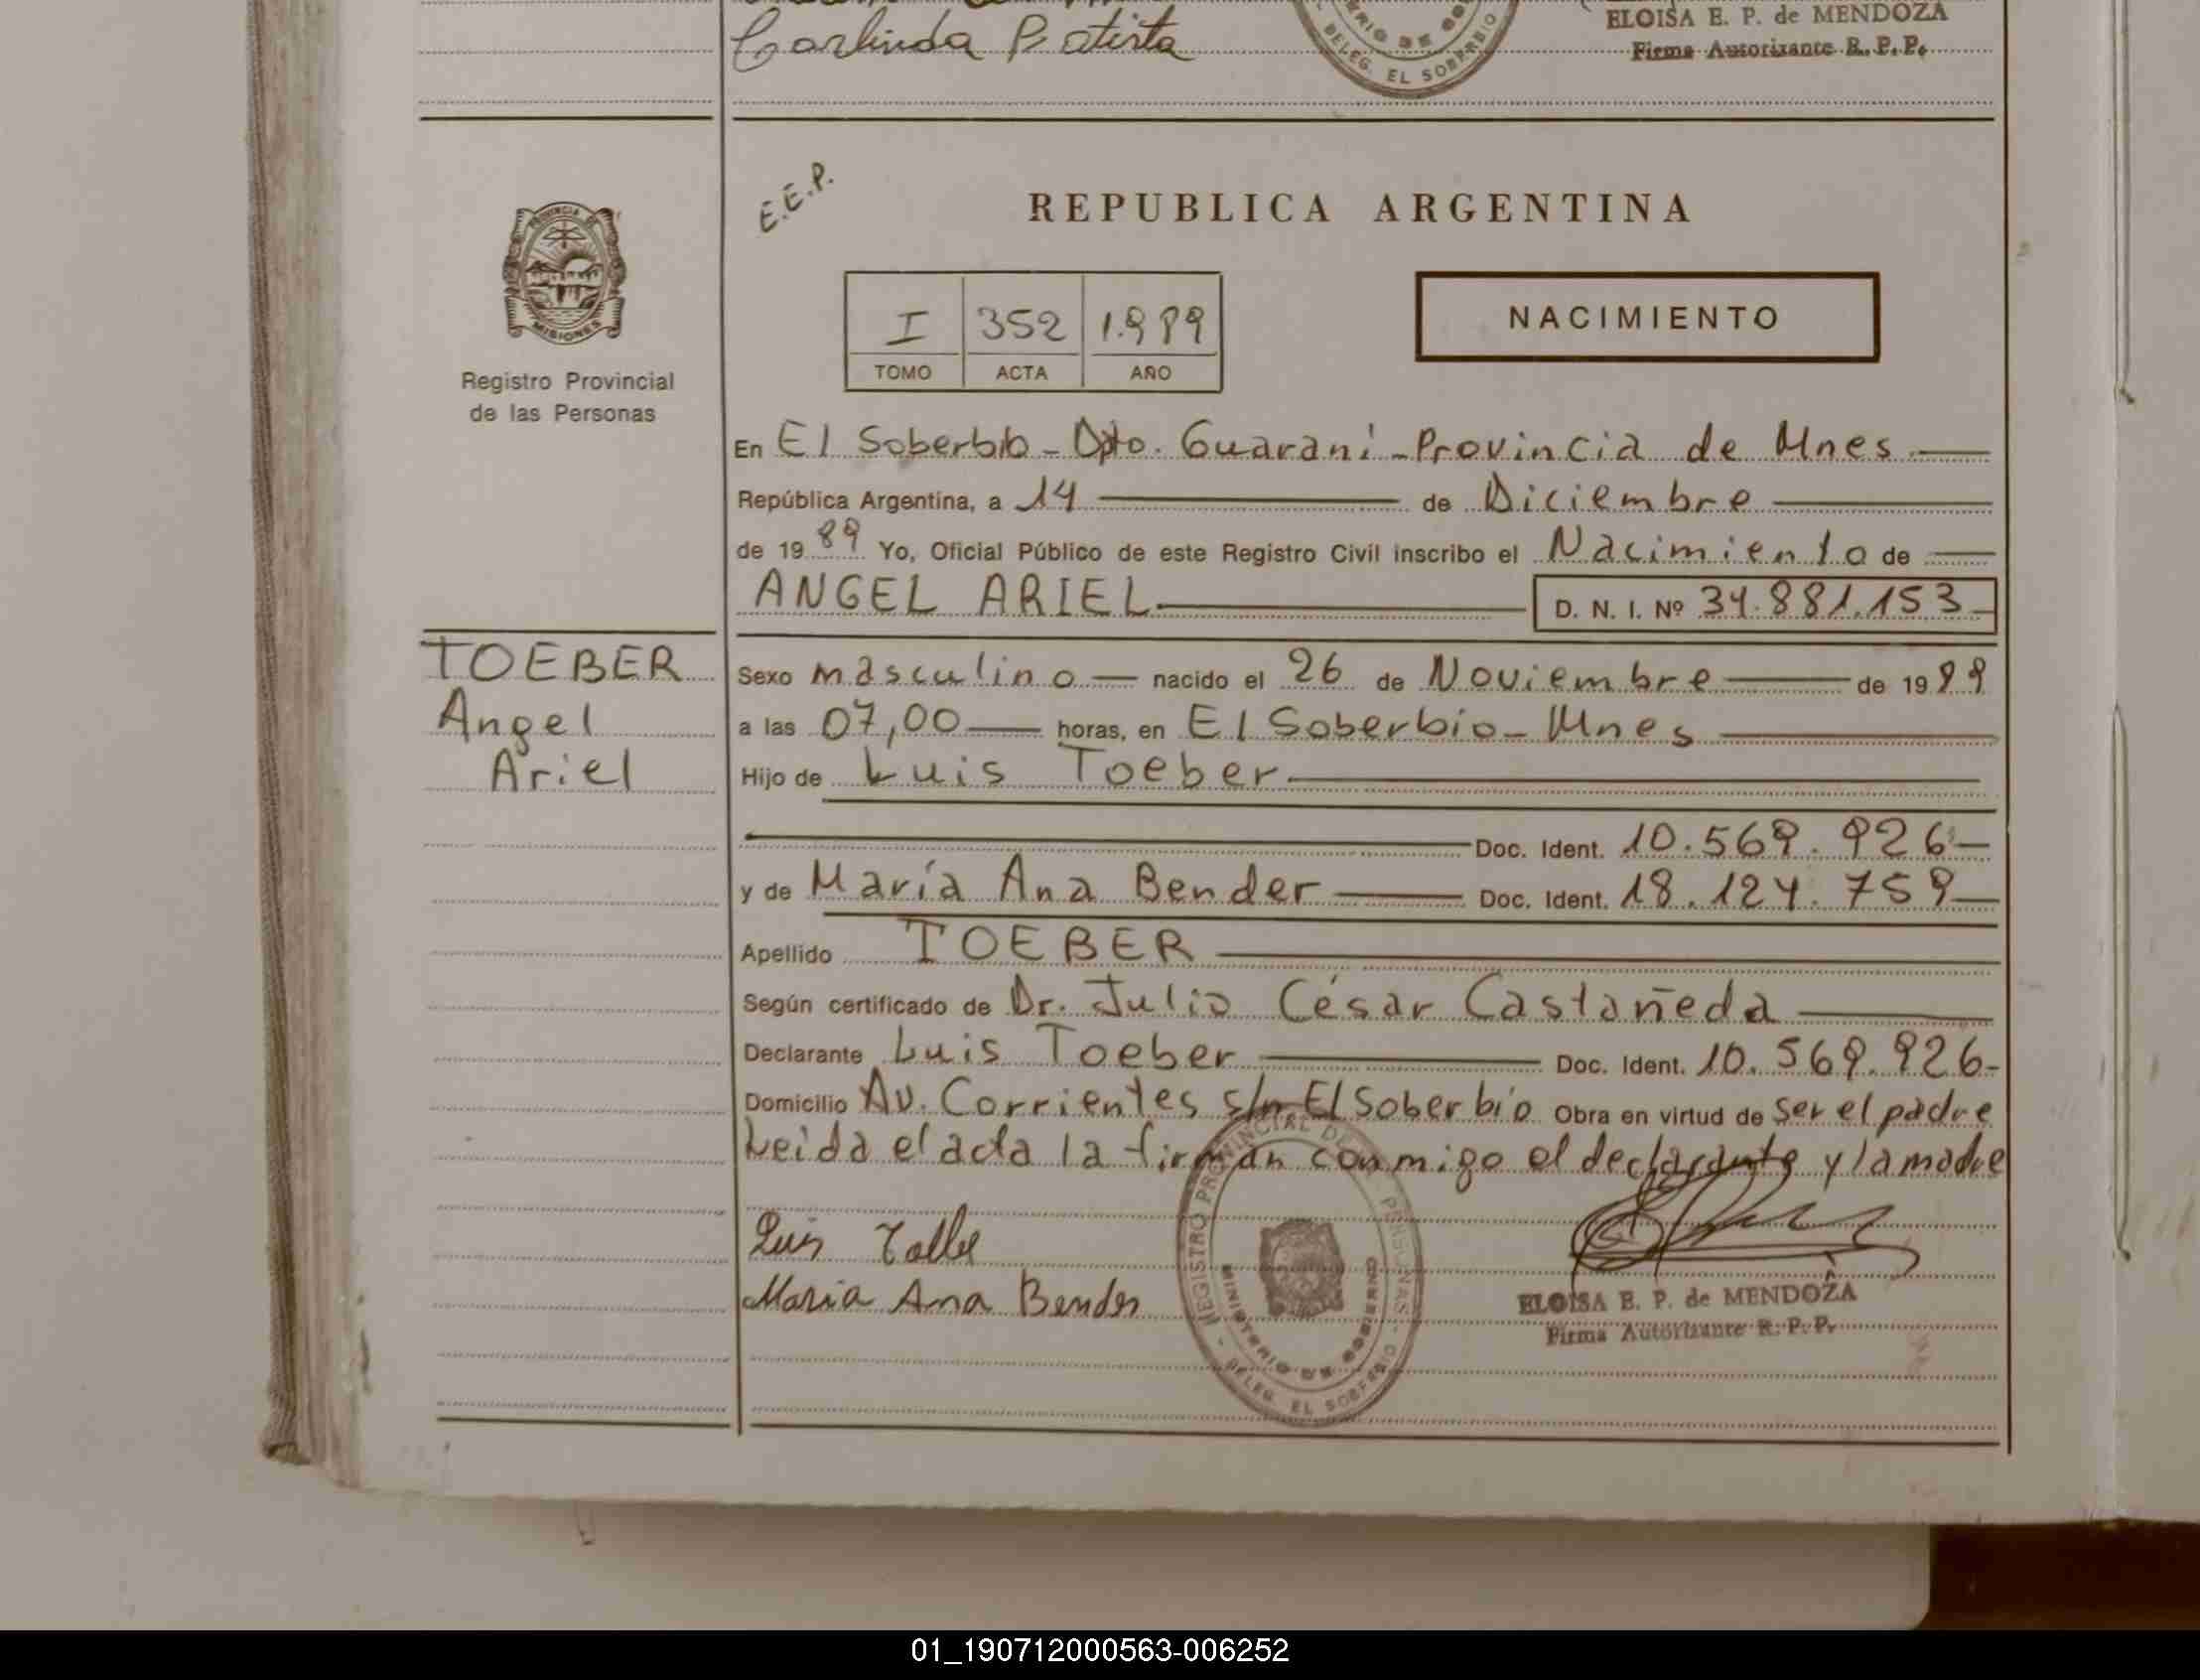 Carlinda Batista
ELOISA E. P. de MENDOZA
Firma Autorizante R. P. P.
DELEG. EL SOBERBIO
E.E.P.
REPUBLICA ARGENTINA
PROVINCIA DE
MISIONES
I 352 1.989
TOMO ACTA AÑO
NACIMIENTO
Registro Provincial
de las Personas
En El Soberbio - Dpto. Guaraní - Provincia de Mnes
República Argentina, a 14 de Diciembre
de 1989 Yo, Oficial Público de este Registro Civil inscribo el Nacimiento de
ANGEL ARIEL D. N. I. Nº 34.881.153
TOEBER
Angel
Ariel
Sexo masculino nacido el 26 de Noviembre de 1989
a las 07,00 horas, en El Soberbio - Mnes
Hijo de Luis Toeber
Doc. Ident. 10.569.926
y de María Ana Bender Doc. Ident. 18.124.759
Apellido TOEBER
Según certificado de Dr. Julio César Castañeda
Declarante Luis Toeber Doc. Ident. 10.569.926
Domicilio Av. Corrientes s/n El Soberbio Obra en virtud de ser el padre
Leida el acta la firman conmigo el declarante y la madre
Luis
Maria Ana Bender
REGISTRO PROVINCIAL DE PERSONAS
MINISTERIO DE GOBIERNO
DELEG. EL SOBERBIO
ELOISA E. P. de MENDOZA
Firma Autorizante R. P. P.
01_190712000563-006252